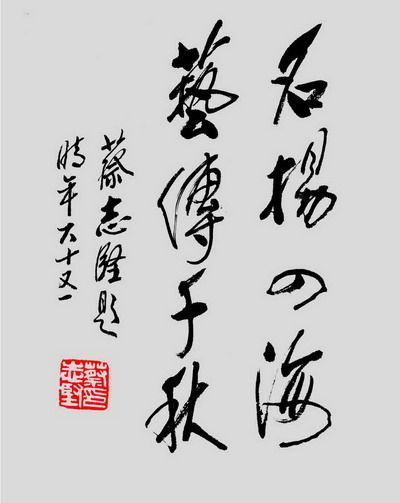 名揚四海
藝傳千秋
蔡志題
時年六十又一